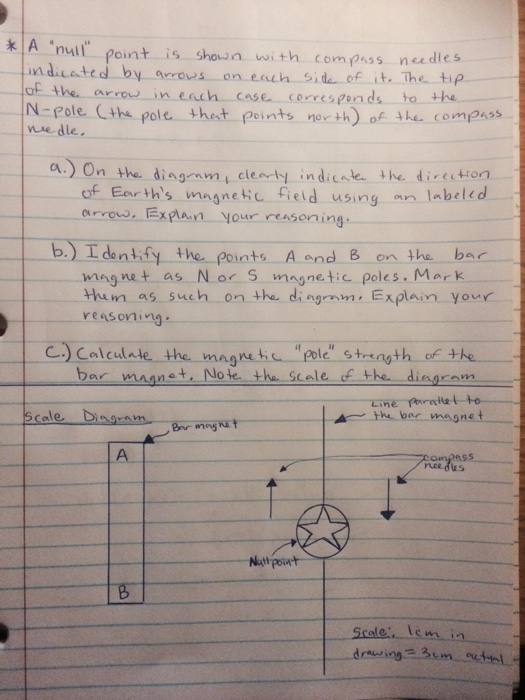 * A "null" point is shown with compass needles
indicated by arrows on each side of it. The tip
of the arrow in each case corresponds to the
N-pole (the pole that points north) of the compass
needle.
a.) On the diagram, clearly indicate the direction
of Earth's magnetic field using an labeled
arrow. Explain your reasoning.
b.) Identify the points A and B on the bar
magnet as N or S magnetic poles. Mark
them as such on the diagram. Explain your
reasoning.
C.) Calculate the magnetic "pole" strength of the
bar magnet. Note the scale of the diagram
Scale Diagram
Bar magnet
Line parallel to
the bar magnet
A
compass
needles
Null point
B
Scale: 1cm in
drawing = 3cm actual